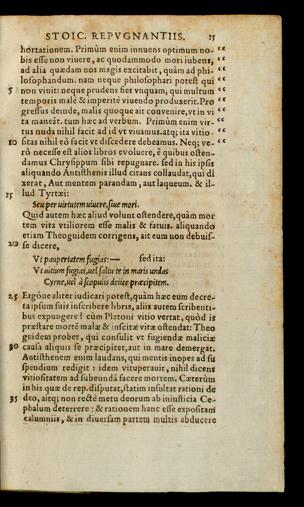 STOIC. REPVGNANTIIS. 15
hortationem. Primùm enim innuens optimum no- “
bis esse non viuere, ac quodammodo mori iubens, “
ad alia quædam nos magis excitabit, quàm ad phi- “
losophandum. nam neque philosophari potest qui “
5 non viuit: neque prudens fiet vnquam, qui multum “
temporis malè & imperitè viuendo produxerit. Pro “
gressus deinde, malis quoque ait conuenire, vt in vi “
ta maneāt. tum hæc ad verbum. Primùm enim vir- “
tus nuda nihil facit ad id vt viuamus. atq; ita vitio “
10 sitas nihil eò facit vt discedere debeamus. Neq; ve- “
rò necesse est alios libros euoluere, è quibus osten-
damus Chrysippum sibi repugnare. sed in his ipsis
aliquando Antisthenis illud citans collaudat, qui di
xerat, Aut mentem parandam, aut laqueum. & il-
15 lud Tyrtæi:
Seu per uirtutem uiuere, siue mori.
Quid autem hæc aliud volunt ostendere, quàm mor
tem vita vtiliorem esse malis & fatuis. aliquando
etiam Theoguidem corrigens, ait eum non debuis-
20 se dicere,
Vt paupertatem fugias:— sed ita:
Vt uitium fugias, uel saltu te in maris undas
Cyrne, uel à scopulis deiice præcipitem.
25 Ergóne aliter iudicari potest, quàm hæc eum decre-
ta ipsum suis inscribere libris, aliis autem scribenti-
bus expungere? cùm Platoni vitio vertat, quòd is
præstare mortē malæ & inscitæ vitæ ostendat: Theo
guidem probet, qui consulit vt fugiendæ maliciæ
30 causa aliquis se præcipitet, aut in mare demergat.
Antisthenem enim laudans, qui mentis inopes ad su
spendium redigit: idem vituperauit, nihil dicens
vitiositatem ad subeundā facere mortem. Cæterùm
in his quæ de rep. disputat, statim insultat rationi de
35 deo, aitq; non rectè metu deorum ab iniusticia Ce-
phalum deterrere: & rationem hanc esse expositam
calumniis, & in diuersam partem multis abducere